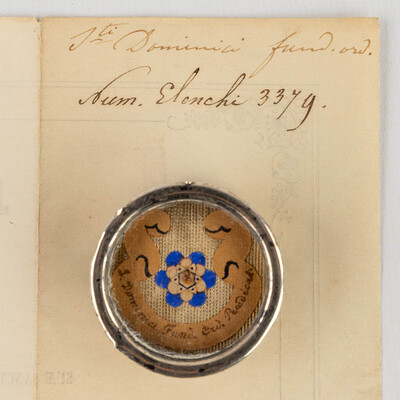 Sti Dominici fund. ord.
Num. Elenchi 3379.
S. Dominici Fund. Ord. Prædicat.